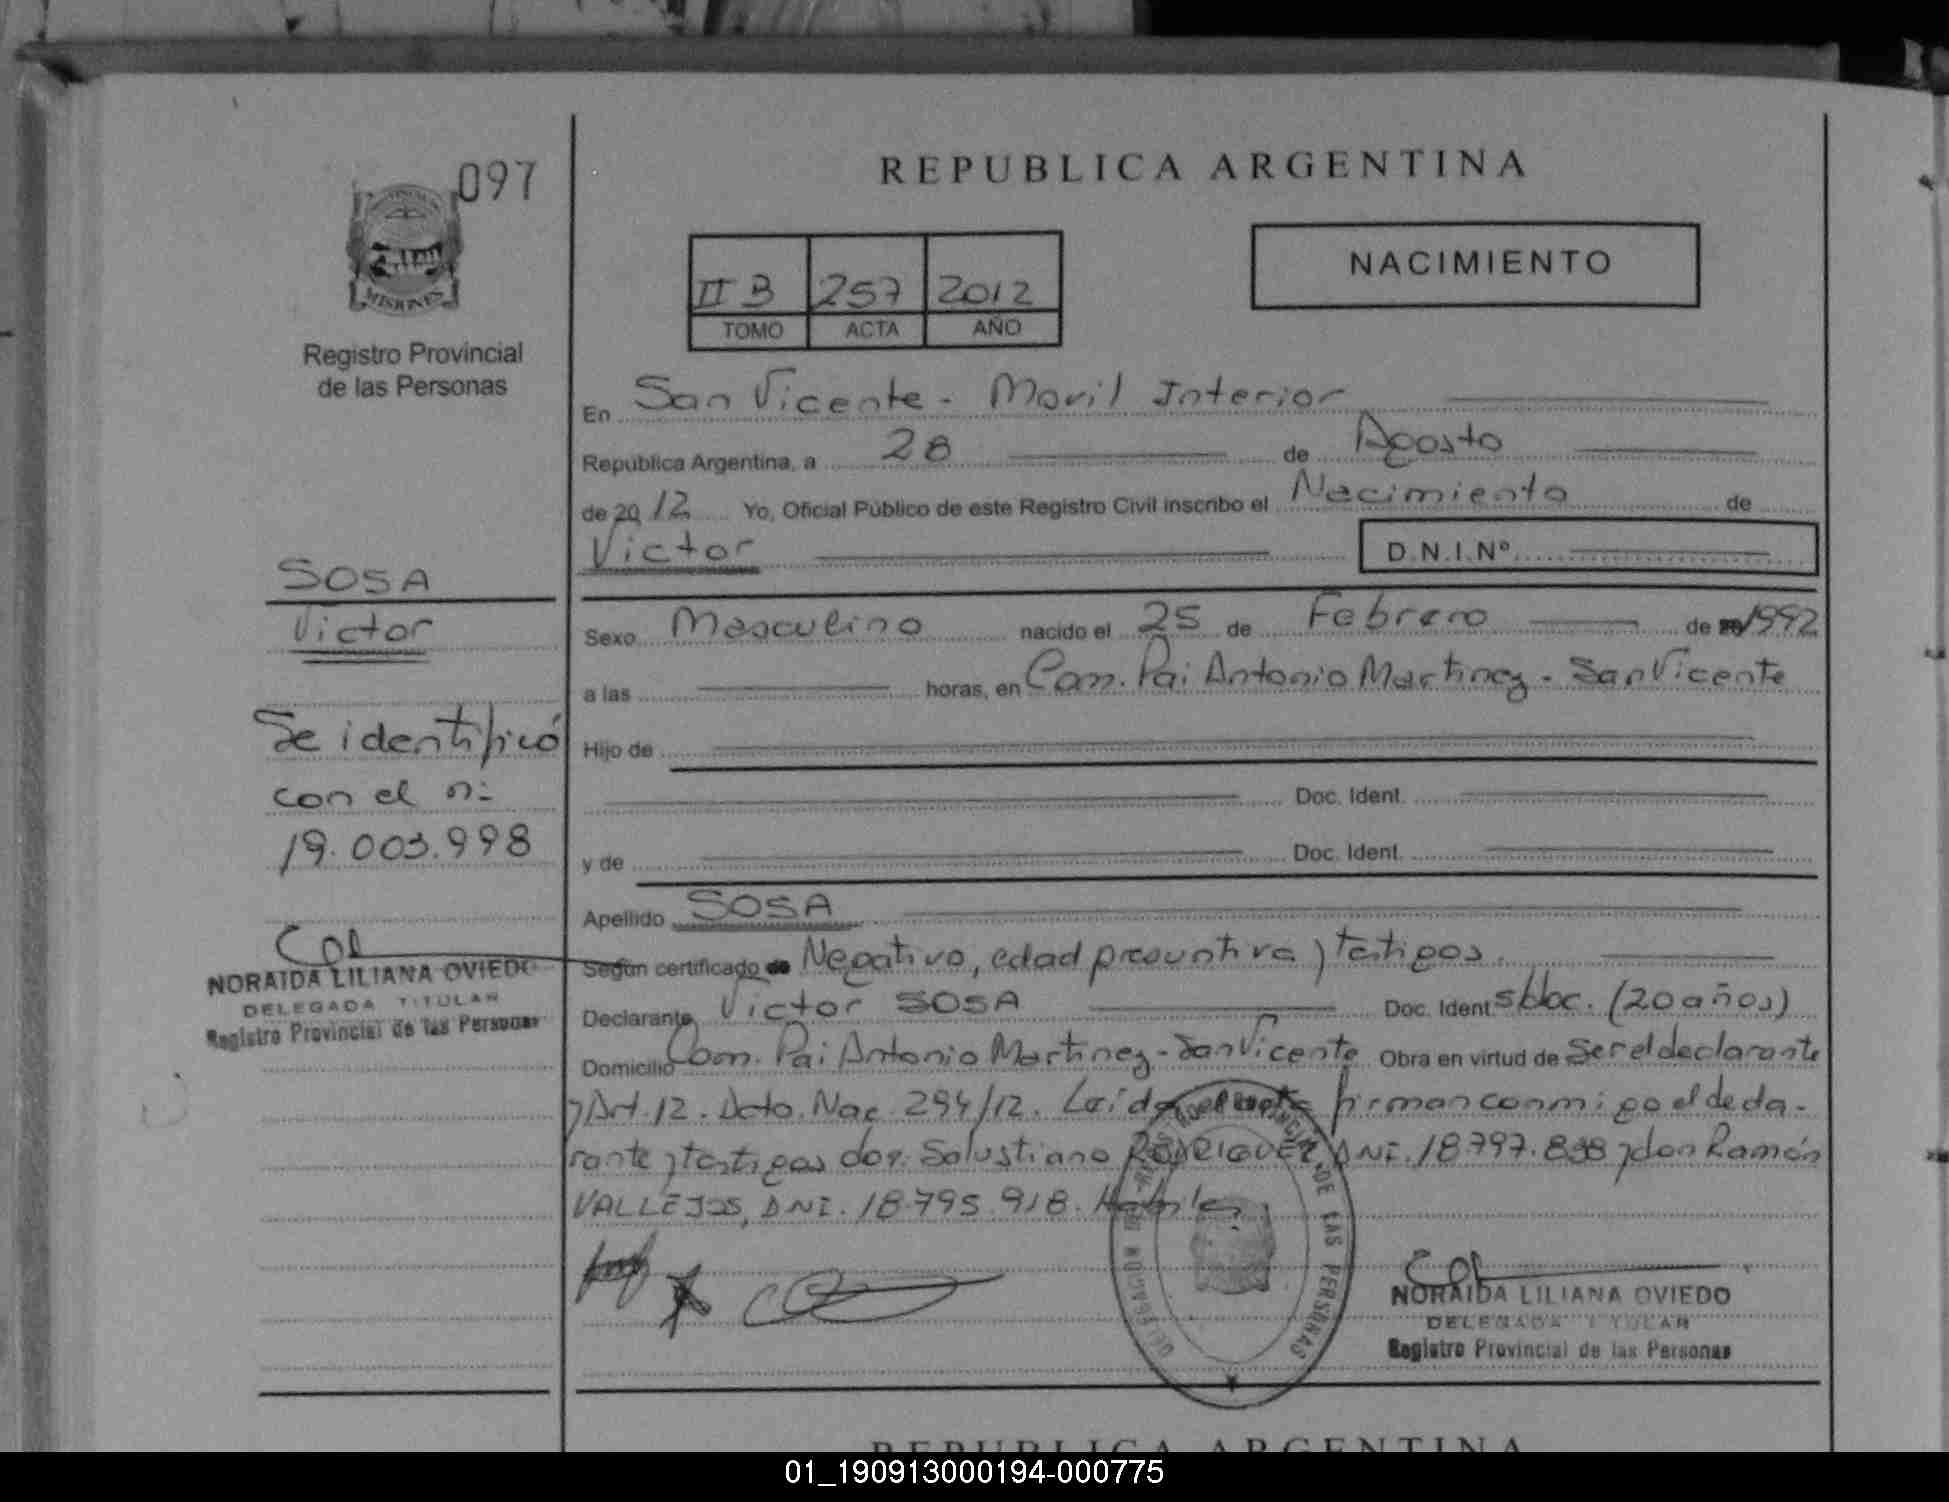 097
MISIONES
Registro Provincial
de las Personas
SOSA
Victor
Se identificó
con el nº
19.003.998
NORAIDA LILIANA OVIEDO
DELEGADA TITULAR
Registro Provincial de las Personas
REPUBLICA ARGENTINA
NACIMIENTO
II B 257 2012
TOMO ACTA AÑO
En San Vicente - Movil Interior
Republica Argentina, a 28 de Agosto
de 2012 Yo, Oficial Público de este Registro Civil inscribo el Nacimiento de
Victor D.N.I.Nº
Sexo Masculino nacido el 25 de Febrero de 1992
a las horas, en Com. Pai Antonio Martinez - San Vicente
Hijo de
Doc. Ident.
y de Doc. Ident.
Apellido SOSA
Según certificado de Negativo, edad presuntiva y testigos.
Declarante Victor SOSA Doc. Ident. s/doc. (20 años)
Domicilio Com. Pai Antonio Martinez - San Vicente Obra en virtud de ser el declarante
y Art. 12. Dcto. Nac. 294/12. Leída el acta firman conmigo el decla-
rante y testigos don Salustiano RODRIGUEZ, DNI. 18.797.898 y don Ramón
VALLEJOS, DNI. 18.795.918. Habiles.
DELEGACION REGISTRO PROVINCIAL DE LAS PERSONAS
NORAIDA LILIANA OVIEDO
DELEGADA TITULAR
Registro Provincial de las Personas
REPUBLICA ARGENTINA
01_190913000194-000775